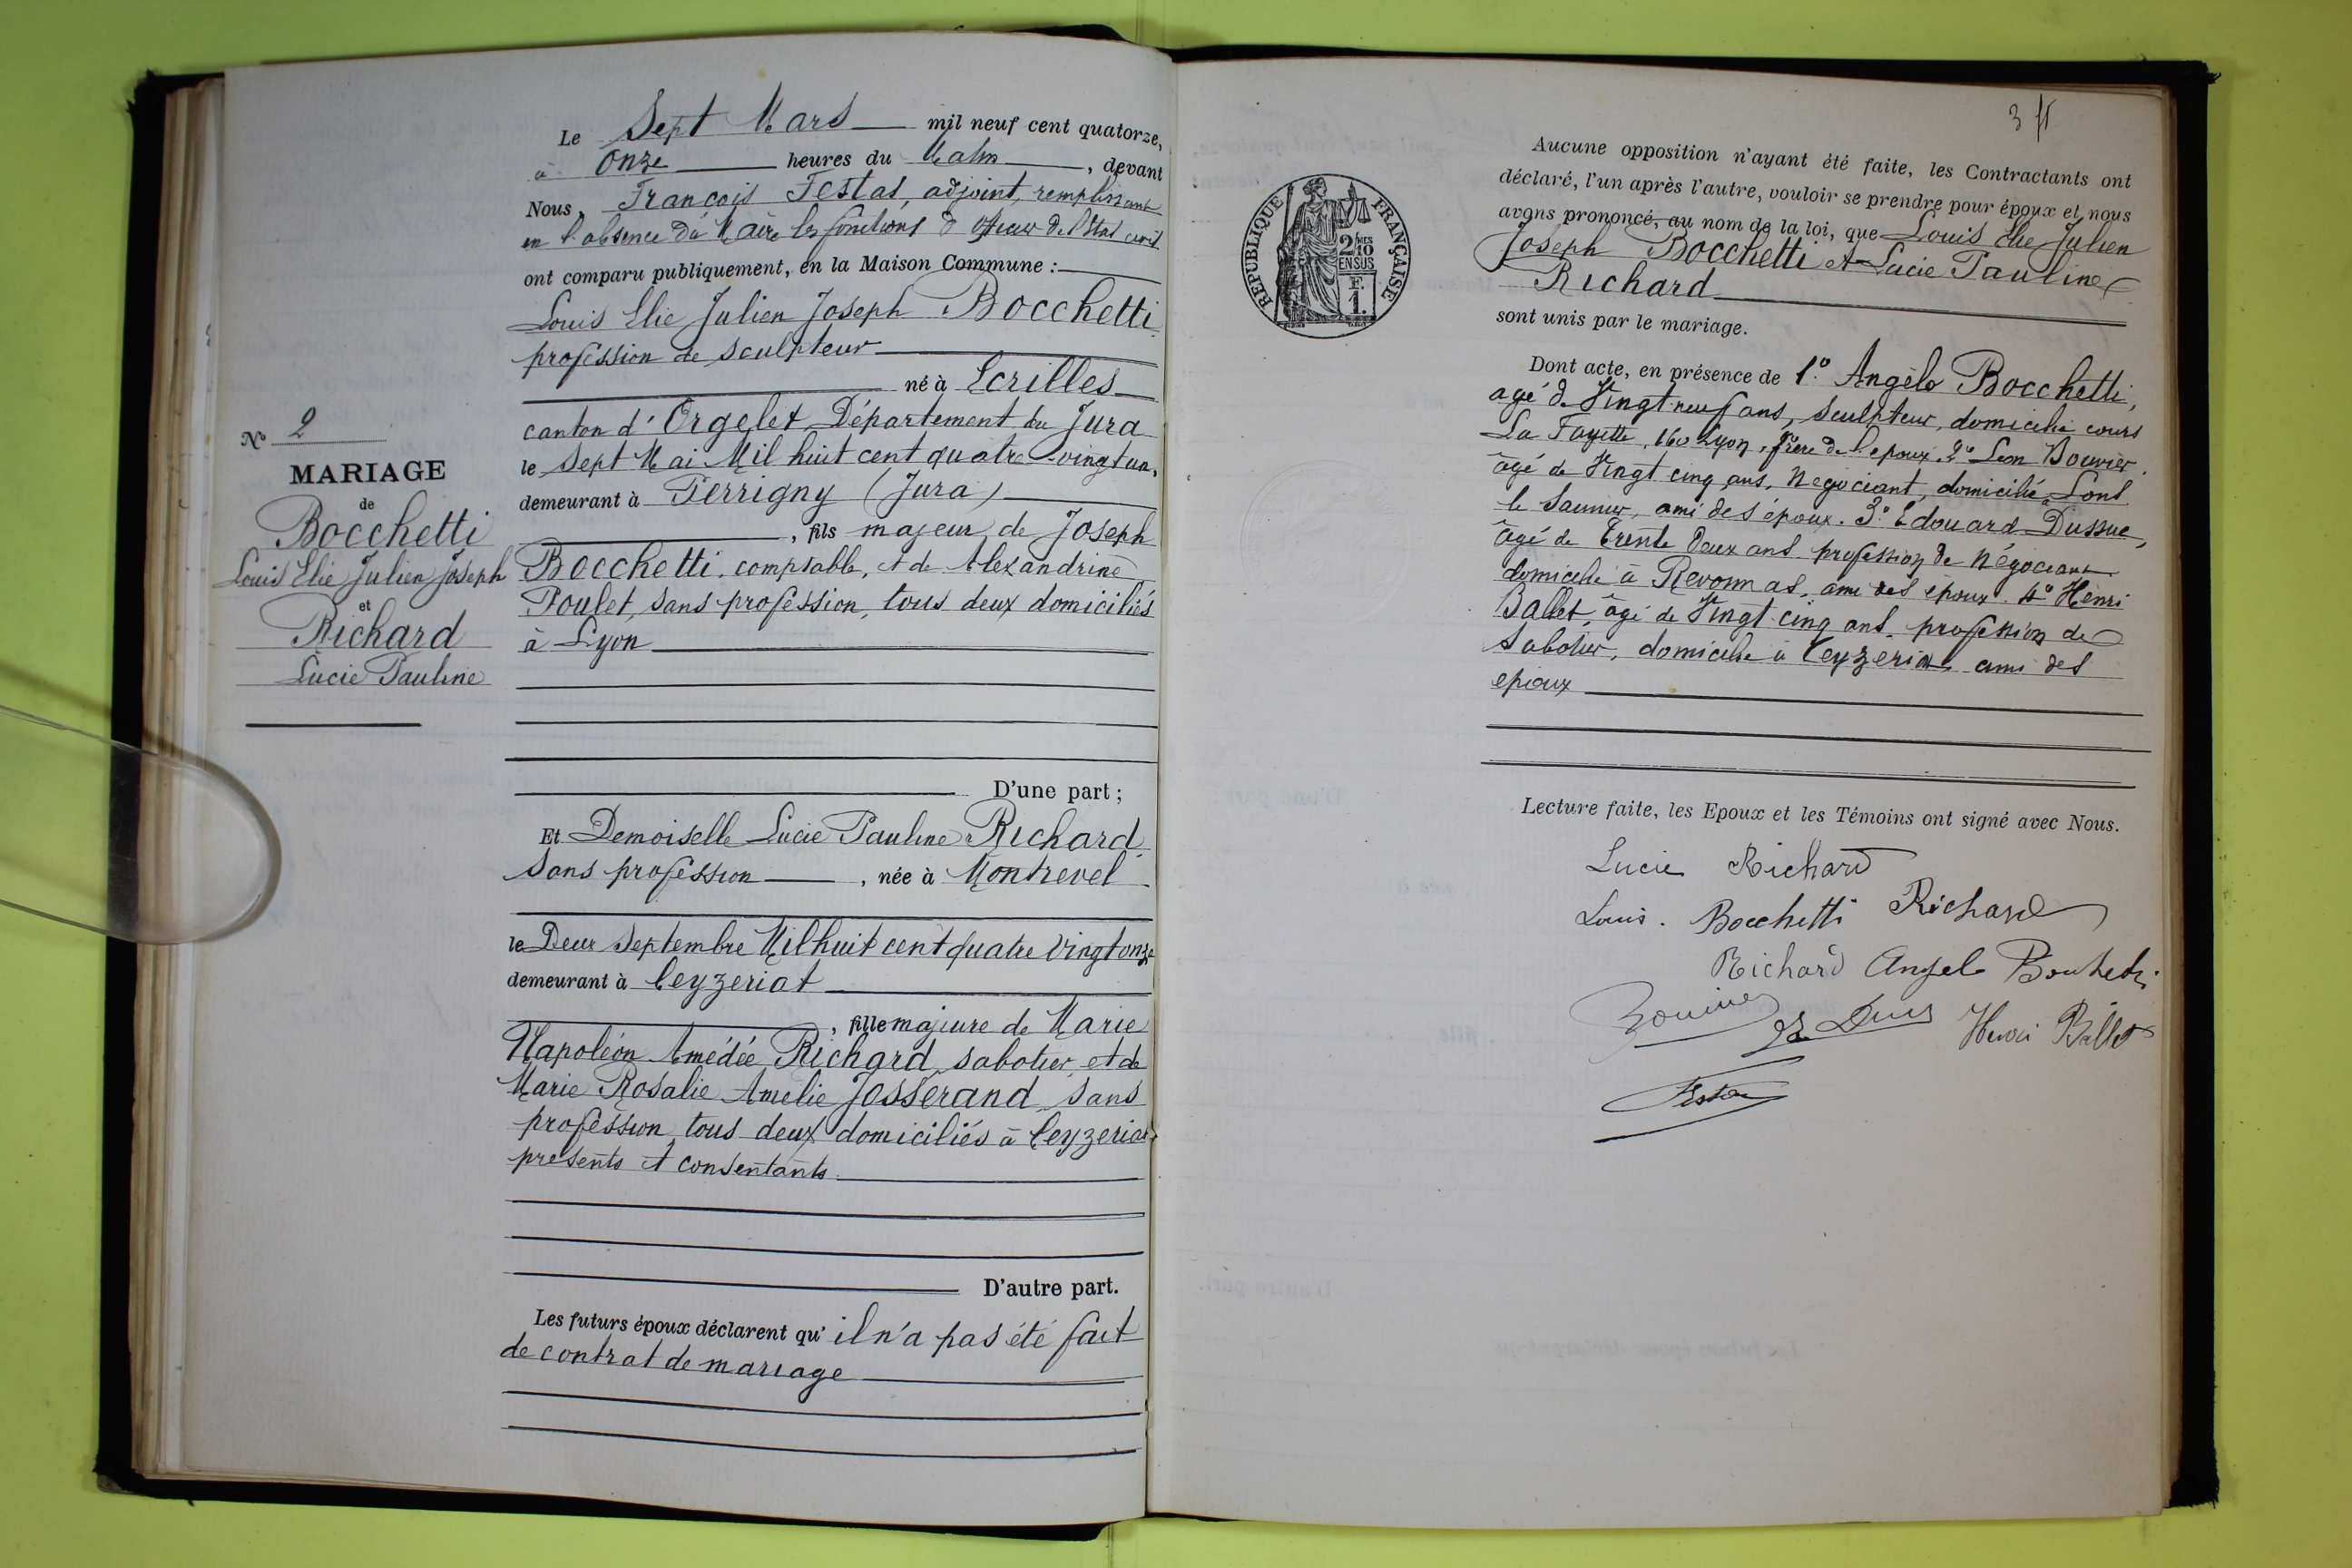 Le Sept Mars mil neuf cent quatorze,
à Onze heures du Matin, devant
Nous, François Festas, adjoint, remplissant
en l'absence du Maire les fonctions d'officier de l'Etat civil
ont comparu publiquement, en la Maison Commune :
Louis Elie Julien Joseph Bocchetti
profession de sculpteur
né à Ecrilles
canton d'Orgelet, Département du Jura
le Sept Mai Mil huit cent quatre-vingt un,
demeurant à Perrigny (Jura)
, fils majeur de Joseph
Bocchetti, comptable, et de Alexandrine
Poulet, sans profession, tous deux domiciliés
à Lyon
No 2
MARIAGE
de
Bocchetti
Louis Elie Julien Joseph
et
Richard
Lucie Pauline
D'une part ;
Et Demoiselle Lucie Pauline Richard
sans profession, née à Montrevel
le Deux Septembre Mil huit cent quatre vingt onze
demeurant à Ceyzeriat
, fille majeure de Marie
Napoléon Amédée Richard, sabotier, et de
Marie Rosalie Amelie Josserand, sans
profession, tous deux domiciliés à Ceyzeriat,
présents et consentants
D'autre part.
Les futurs époux déclarent qu'il n'a pas été fait
de contrat de mariage
3
Aucune opposition n'ayant été faite, les Contractants ont
déclaré, l'un après l'autre, vouloir se prendre pour époux et nous
avons prononcé, au nom de la loi, que Louis Elie Julien
Joseph Bocchetti et Lucie Pauline
Richard
sont unis par le mariage.
REPUBLIQUE FRANÇAISE
2/10
EN SUS
F.
1.
Dont acte, en présence de 1° Angèlo Bocchetti,
agé de Vingt neuf ans, sculpteur, domicilié cours
La Fayette, 160 Lyon, frère de l'epoux. 2° Leon Bouvier
âgé de Vingt cinq ans, Negociant, domicilié à Lons
le Saunier, ami des époux. 3° Edouard Dussue,
âgé de trente deux ans profession de Négociant
domicilié à Revonnas, ami des époux. 4° Henri
Ballet, âgé de Vingt-cinq ans, profession de
sabotier, domicilié à Ceyzeriat, ami des
epoux
Lecture faite, les Epoux et les Témoins ont signé avec Nous.
Lucie Richard
Louis. Bocchetti Richard
Richard Angelo Bochetti
Bouvier Henri Ballet
Festas